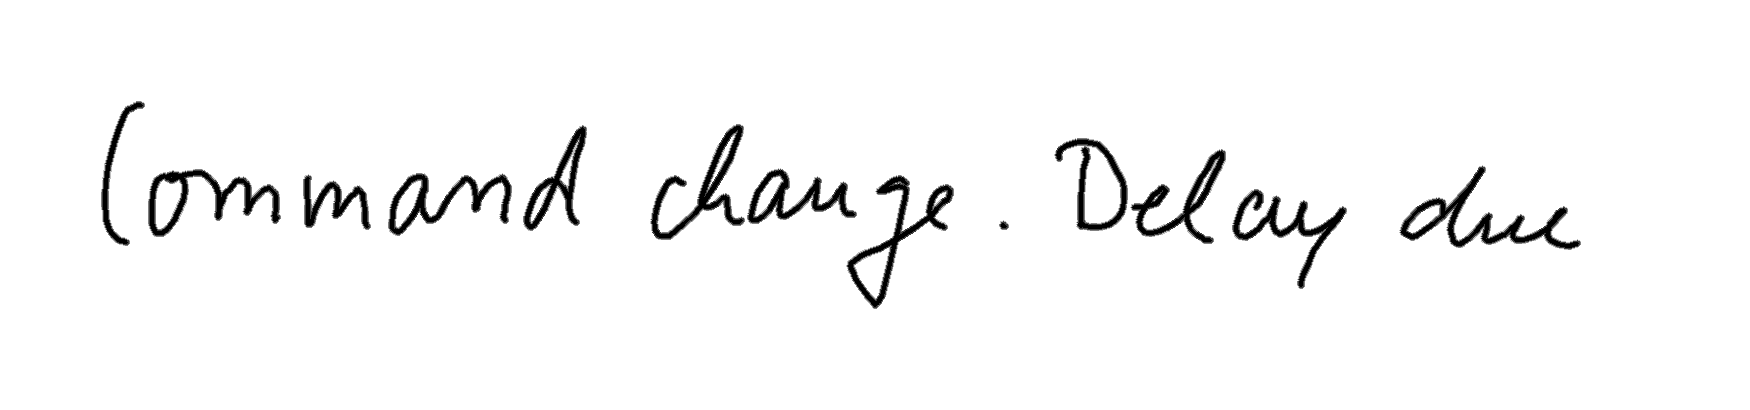 Command change. Delay due